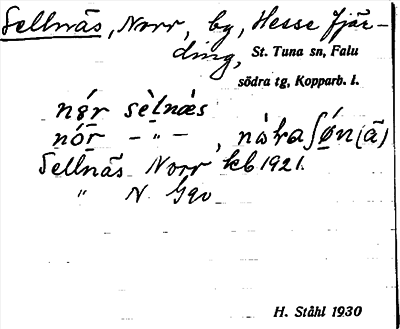 Sellnäs, Norr, by, Hesse fjär-
ding, St. Tuna sn, Falu
södra tg, Kopparb. l.
nǿr sèlnæ̀s
nór – " – , nò̀ra ʃǿn(ä)
Sellnäs Norr kb 1921.
" N. Gqv
H. Ståhl 1930